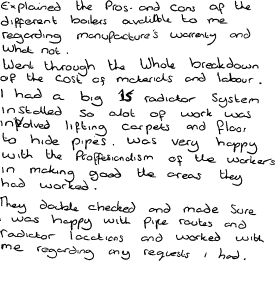 Explained the Pros- and Cons of the
different boilers available to me
regarding manufacture's warenty and
what not.
Went through the Whole breakdown
of the cost of materials and labour.
I had a big 15 radiator System
installed so alot of work was
involved lifting carpets and floor
to hide pipes. Was very happy
with the Proffesionalism of the workers
in making good the areas they
had worked.
They double checked and made Sure
i was happy with pipe routes and
radiator locations and worked with
me regarding any requests i had.